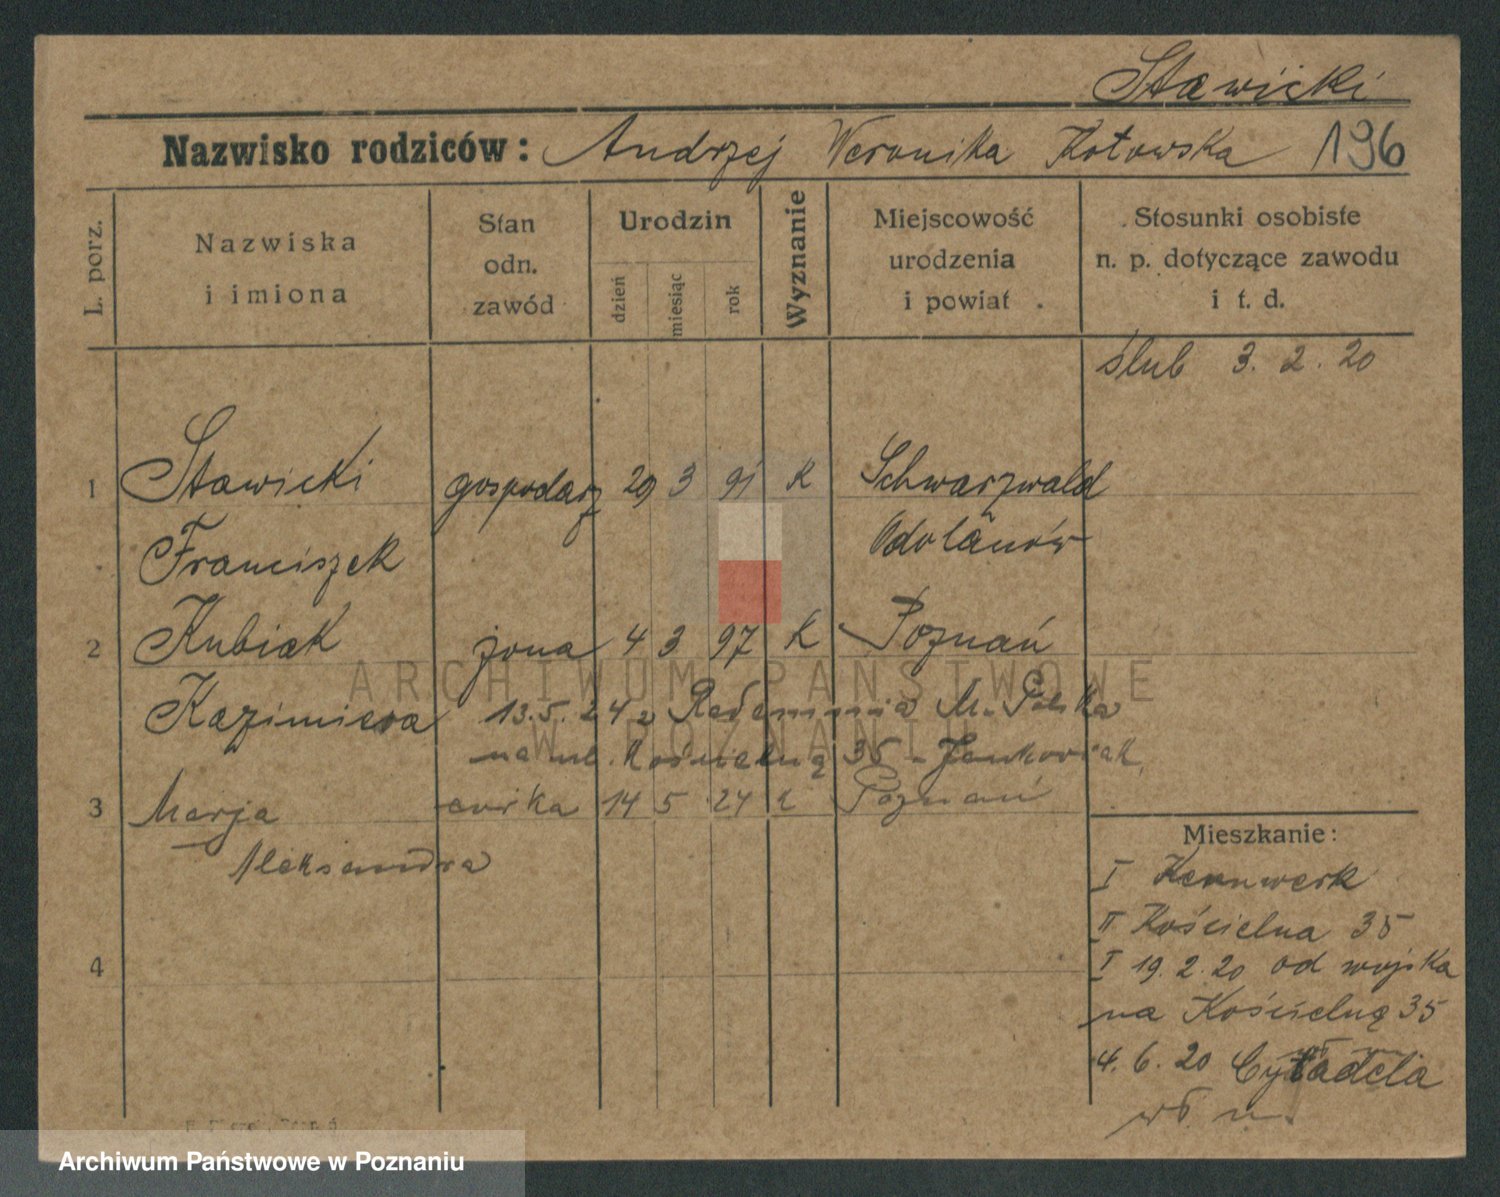 Stawicki
Nazwisko rodziców: Andrzej Weronika Kotowska 196
L. porz.
Nazwiska
i imiona
Stan
odn.
zawód
Urodzin
dzień
miesiąc
rok
Wyznanie
Miejscowość
urodzenia
i powiat
Stosunki osobiste
n. p. dotyczące zawodu
i t. d.
ślub 3. 2. 20
1 Stawicki gospodarz 29 3 91 K Schwarzwald
Franciszek Odolanów
2 Kubiak żona 4 3 97 K Poznań
Kazimiera 13.5.24 z M. Polska
na ul. Kościelną 35 - Jankowiak
3 Marja córka 14 5 24 k Poznań
Aleksandra
4
Mieszkanie:
I Kernwerk
II Kościelna 35
I 19.2.20 od wojska
na Kościelną 35
4.6.20 Cytadela
wł. m.
ARCHIWUM PAŃSTWOWE
W POZNANIU
Archiwum Państwowe w Poznaniu